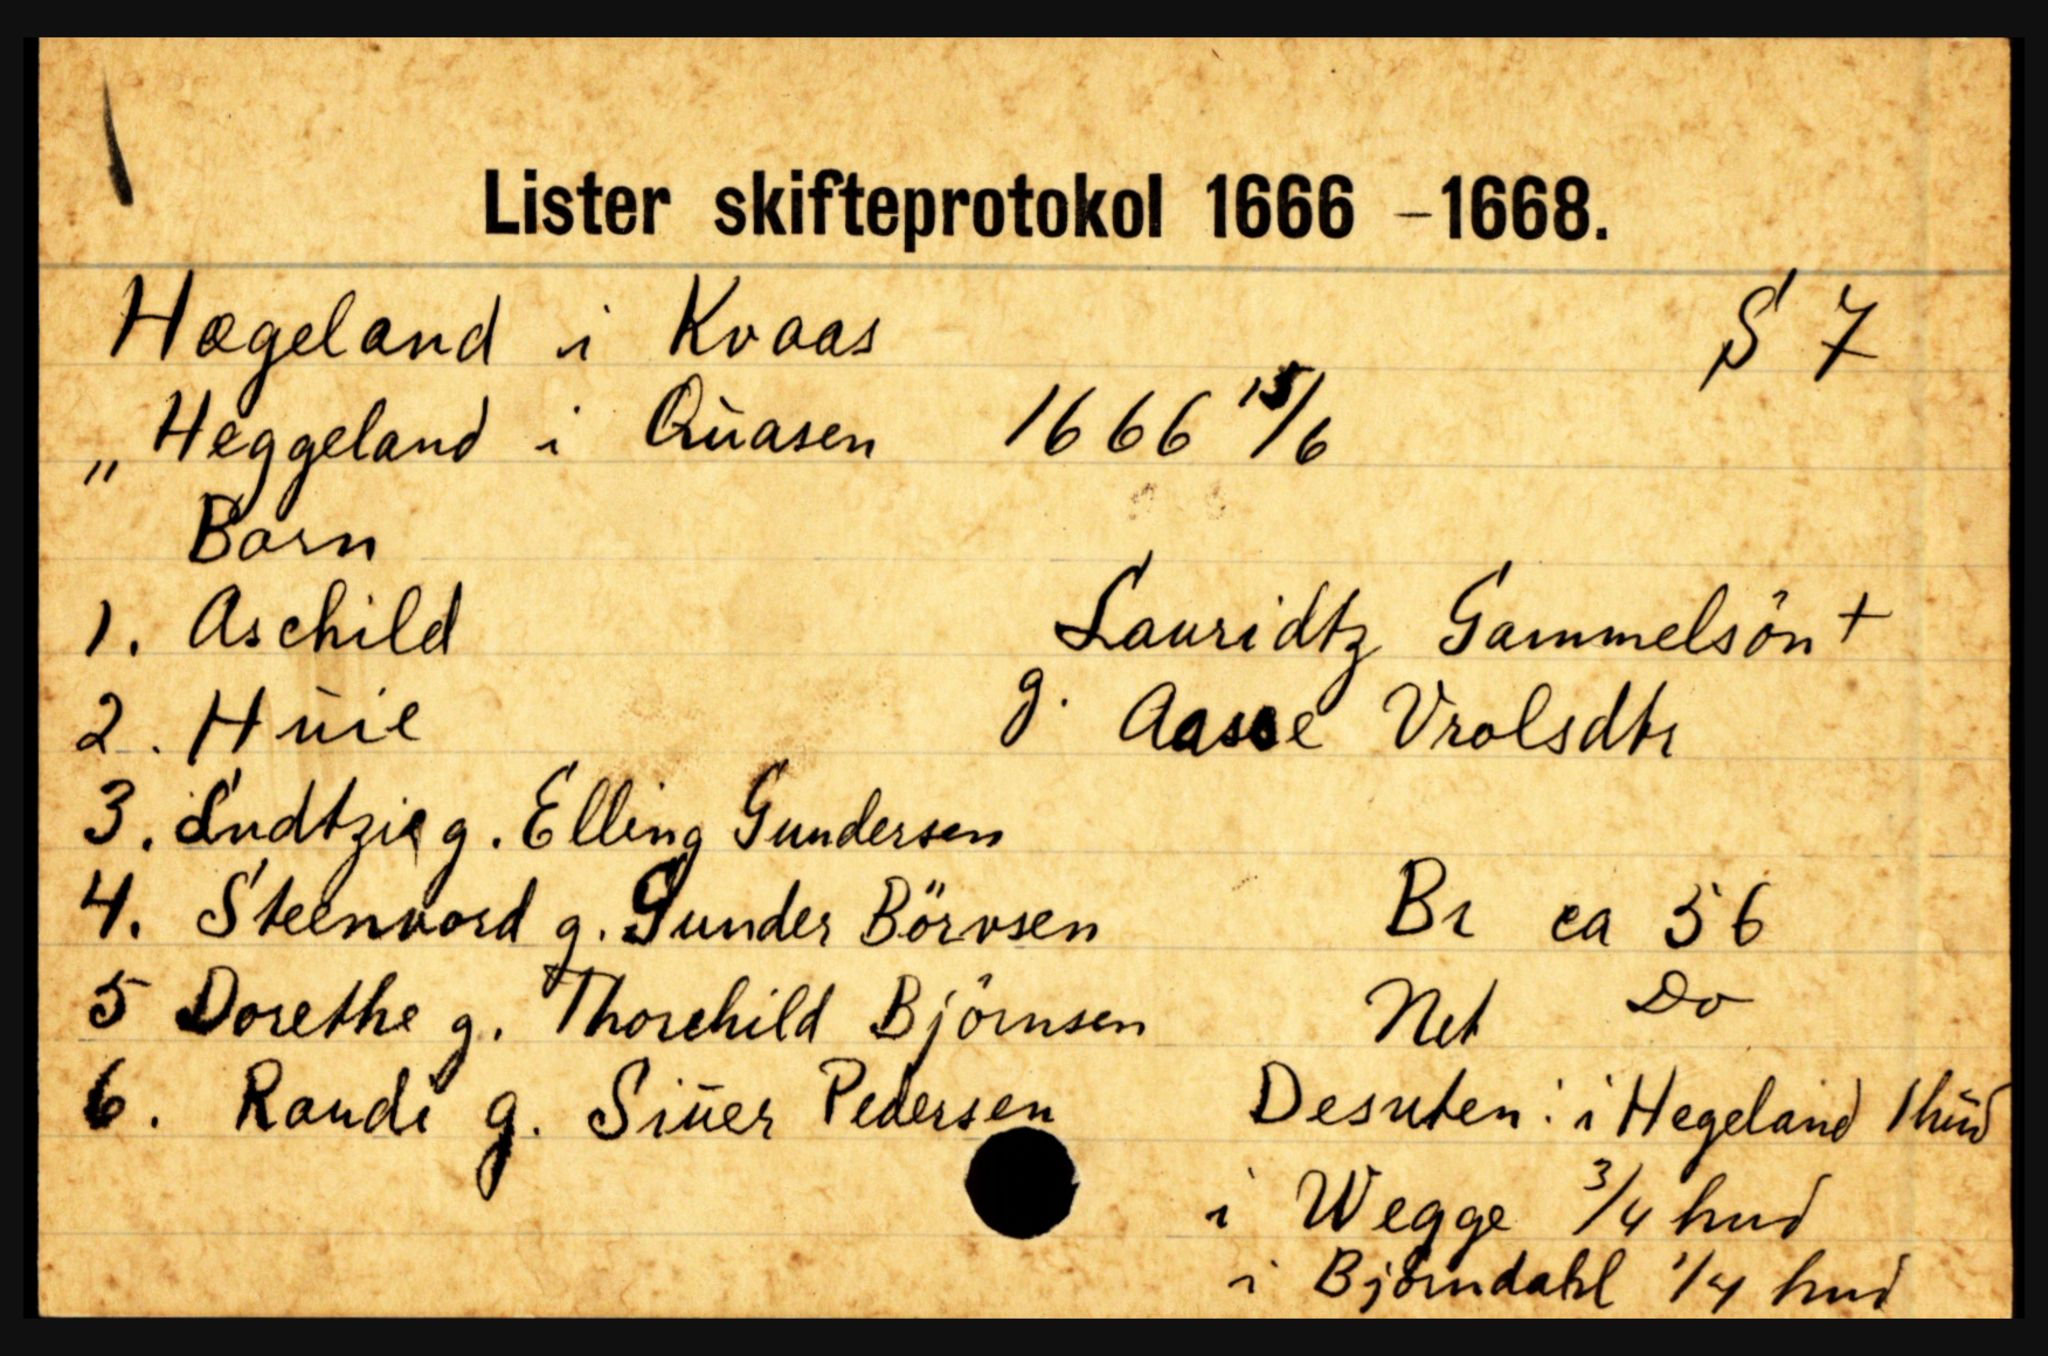 Lister skifteprotokol 1666 – 1668.
Hægeland i Kvaas S 7
„ Heggeland i Qŭasen 1666 15/6
Born
1. Aschild Lauridtz Gammelsön +
2. Hŭie g. Aasse Vrolsdtr
3. Ludtzie g. Elling Gundersen
4. Steenvord g. Gunder Börvsen Br ca 56
5 Dorethe g. Thorchild Björnsen Net Do
6. Randi g. Siŭer Pedersen Desuten: i Hegeland 1 hŭd
i Wegge 3/4 hud
i Björndahl 1/4 hud